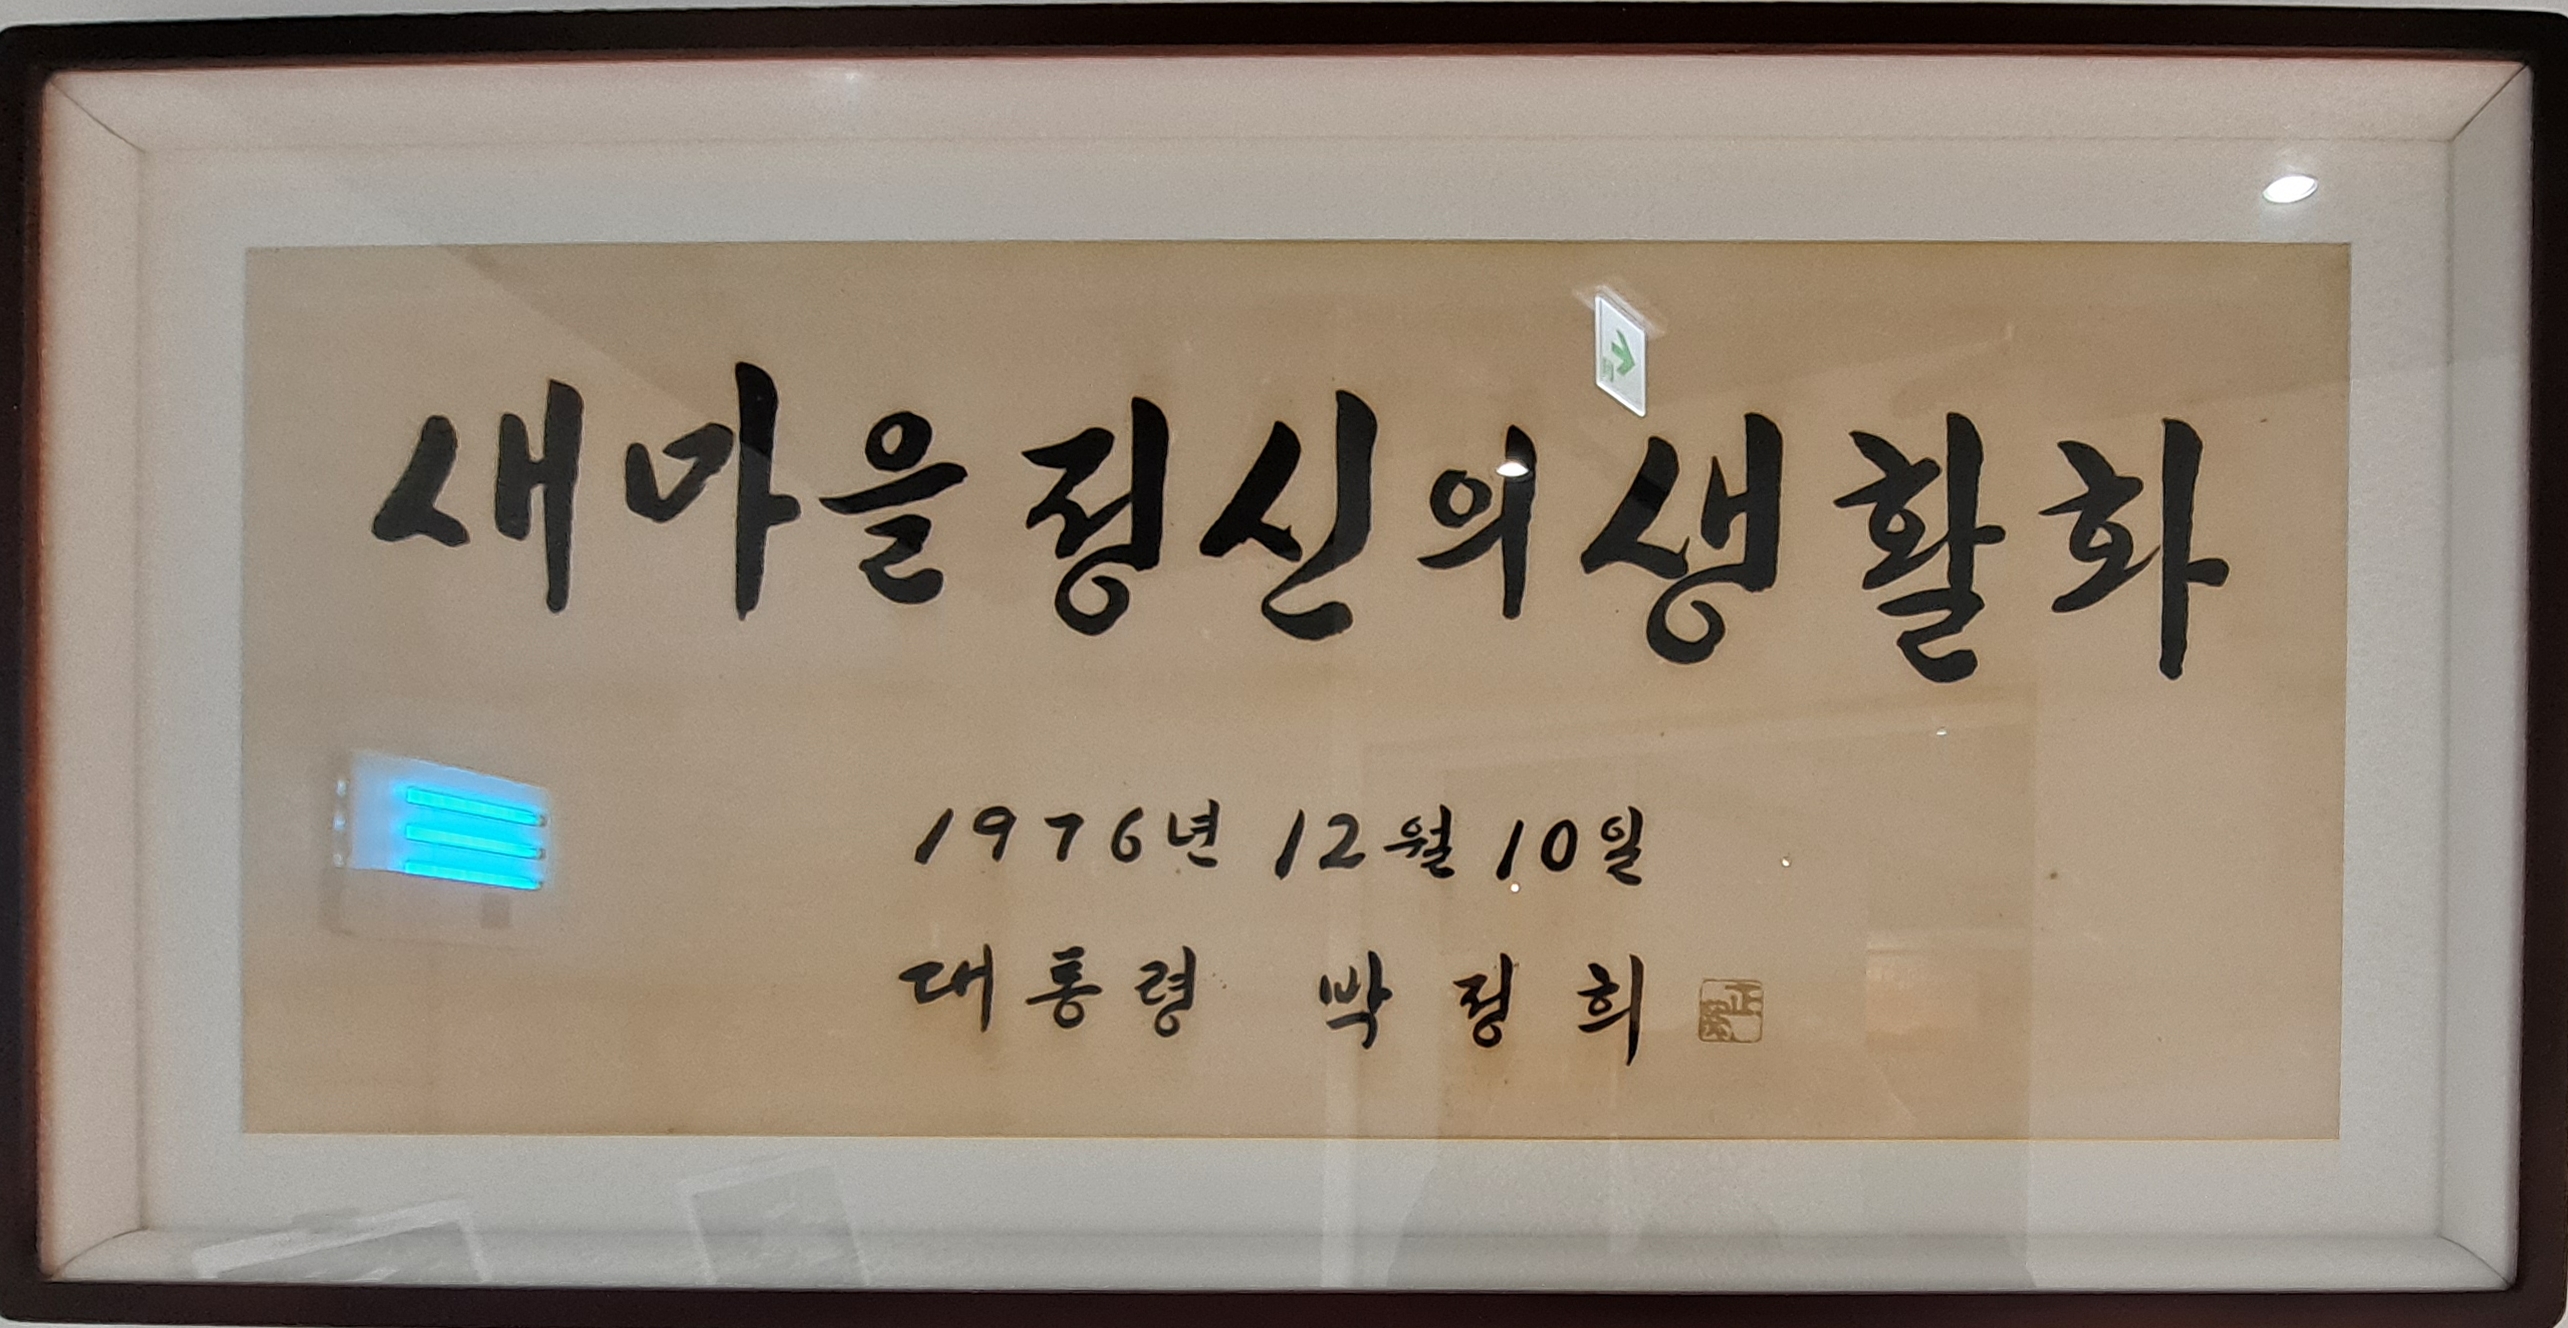 새마을정신의생활화
1976년 12월 10일
대통령 박정희